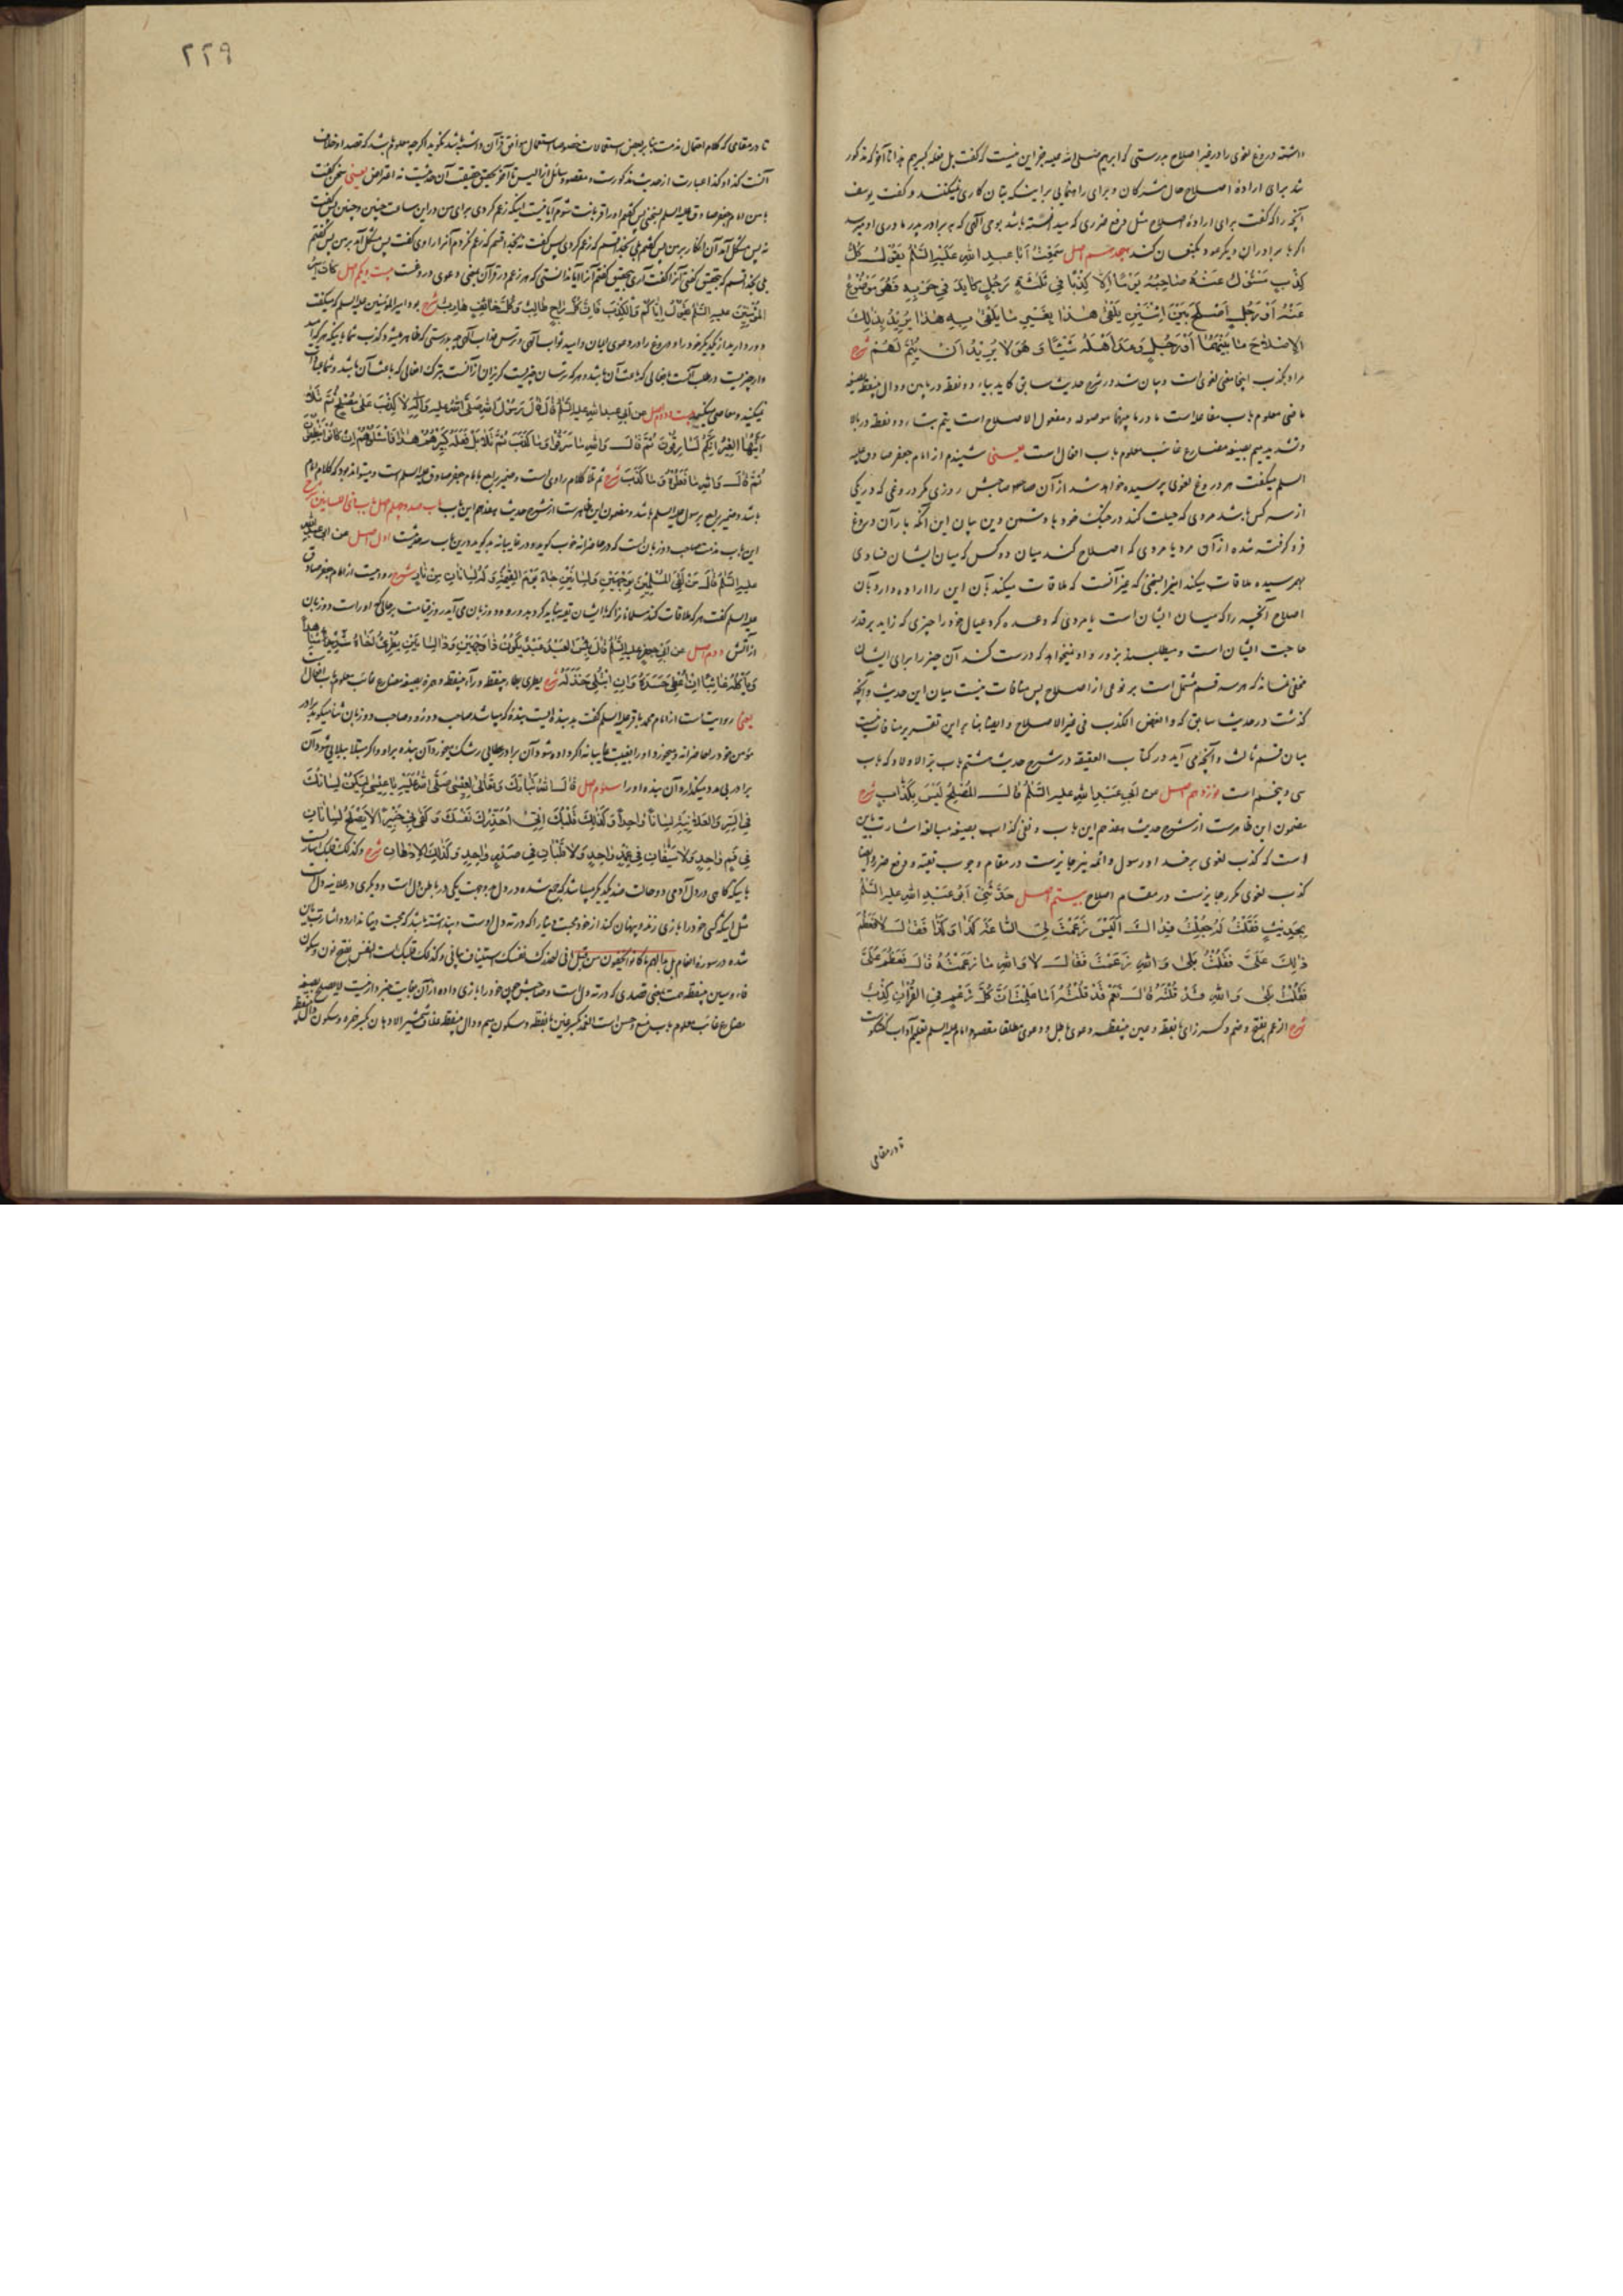 داشته دروغ لغوی را در غیر اصلاح بدرستی که ابراهیم صلی الله علیه جز این نیست که گفت بل فعله کبیرهم هذا تا آخر که مذکور
شد برای ارادهٔ اصلاح حال مشرکان و برای راهنمایی بر اینکه بتان کاری نمیکنند و گفت یوسف
آنچه را که گفت برای ارادهٔ اصلاح مثل دفع ضرری که میدانسته باشد بوحی الهی که به برادر پدر مادری او میرسد
اگر با برادران دیگر رود بکنعان کند هجدهم اصل سَمِعْتُ أَبَا عَبْدِ اللهِ عَلَيْهِ السَّلَمُ يَقُولُ كُلُّ
كِذْبٍ مَسْئُولٌ عَنْهُ صَاحِبُهُ يَوْمًا إِلَّا كِذْبًا فِي ثَلٰثَةٍ رَجُلٍ كَايَدَ فِي حَرْبِهِ فَهُوَ مَوْضُوعٌ
عَنْهُ أَوْ رَجُلٍ أَصْلَحَ بَيْنَ اثْنَيْنِ يَلْقٰى هٰذَا بِغَيْرِ مَا يَلْقٰى بِهِ هٰذَا يُرِيدُ بِذٰلِكَ
الْإِصْلَاحَ مَا بَيْنَهُمَا أَوْ رَجُلٍ وَعَدَ أَهْلَهُ شَيْئًا وَ هُوَ لَا يُرِيدُ أَنْ يُتِمَّ لَهُمْ شرح
مراد بکذب اینجا معنی لغوی است و بیان شد در شرح حدیث سابق کاید بیاء دو نقطه در پایین و دال بینقطه بصیغه
ماضی معلوم باب مفاعله است ما در ما بینهما موصوله و مفعول الاصلاح است یتم بتاء دو نقطه در بالا
و تشدید میم بصیغه مضارع غائب معلوم باب افعال است یعنی شنیدم از امام جعفر صادق علیه
السلم میگفت هر دروغ لغوی پرسیده خواهد شد از آن صاحبش روزی مگر دروغی که در یکی
از سه کس باشد مردی که حیلت کند در جنگ خود با دشمن دین پس آن این آنکه بار آن دروغ
فرو گرفته شده از آن مرد یا مردی که اصلاح کند میان دو کس که میان ایشان فسادی
بهم رسیده ملاقات میکند این را بسخنی که غیر آنست که ملاقات میکند بآن این را اراده دارد بآن
اصلاح آنچه را که میان ایشان است یا مردی که وعده کرد عیال خود را چیزی که زاید بر قدر
حاجت ایشان است و میطلبند بزور و او نمیخواهد که درست کند آن چیز را برای ایشان
مخفی نماند که هر سه قسم مشتمل است بر نوعی از اصلاح پس منافات نیست میان این حدیث و آنچه
گذشت در حدیث سابق که و ابغض الکذب فی غیر الاصلاح و ایضا بنا بر این تقریر منافات نیست
میان قسم ثالث و آنچه می آید در کتاب العقیقه در شرح حدیث هشتم باب بر الاولاد که باب
سی و پنجم است نوزدهم اصل عَنْ أَبِي عَبْدِ اللهِ عليه السَّلَمُ قَالَ الْمُصْلِحُ لَيْسَ بِكَذَّابٍ شرح
مضمون این ظاهرست از شرح حدیث هفدهم این باب و نفی کذاب بصیغه مبالغه اشارت باین
است که کذب لغوی بر خدا و رسول و ائمه نیز جایزست در مقام وجوب تقیه و دفع ضرر و ایضا
کذب لغوی مکرر جایزست در مقام اصلاح بیستم اصل حَدَّثَنِي أَبُو عَبْدِ اللهِ عليه السَّلَمُ
بِحَدِيثٍ فَقُلْتُ لَهُ جُعِلْتُ فِدَاكَ أَلَيْسَ زَعَمْتَ لِيَ السَّاعَةَ كَذَا وَ كَذَا فَقَالَ لَا فَعَظُمَ
ذٰلِكَ عَلَيَّ فَقُلْتُ بَلٰى وَ اللهِ زَعَمْتَ فَقَالَ لَا وَ اللهِ مَا زَعَمْتُهُ قَالَ فَعَظُمَ عَلَيَّ
فَقُلْتُ بَلٰى وَ اللهِ قَدْ قُلْتَهُ قَالَ نَعَمْ قَدْ قُلْتُهُ أَمَا عَلِمْتَ أَنَّ كُلَّ زَعْمٍ فِي الْقُرْآنِ كِذْبٌ
شرح الزعم بفتح و ضم و کسر زای با نقطه و عین بینقطه دعوی باطل و دعوی مطلقا مقصود امام علیه السلم تعلیم آداب گفتگوست
تا در مقامی
۲۲۹
تا در مقامی که کلام احتمال مذمت بنا بر بعض استعمالات خصوصا استعمال موافق قرآن داشته باشد نگوید اگر چه معلوم باشد که قصد او خلاف
آنست کذا و کذا عبارت از حدیث مذکورست و مقصود سائل از الیس تا آخر تحقیق حقیقت آن حدیث نه اعتراض یعنی سخن گفت
با من امام جعفر صادق علیه السلم بسخنی پس گفتم او را قربانت شوم آیا نیست اینکه زعم کردی برای من در این ساعت چنین و چنین پس گفت
نه پس مشکل آمد آن انکار بر من پس گفتم بلی بخدا قسم که زعم کردی پس گفت نه بخدا قسم که زعم نکردم آنرا راوی گفت پس مشکل آمد بر من پس گفتم
بلی بخدا قسم که بتحقیق گفتی آنرا گفت آری بتحقیق گفتم آنرا آیا ندانستی که هر زعم در قرآن بمعنی دعوی دروغست بیست و یکم اصل كَانَ أَمِيرُ
الْمُؤْمِنِينَ عليه السَّلَمُ يَقُولُ إِيَّاكُمْ وَ الْكِذْبَ فَإِنَّ كُلَّ رَاجٍ طَالِبٌ وَ كُلَّ خَائِفٍ هَارِبٌ شرح بود امیر المؤمنین علیه السلم که میگفت
دور دارید از یکدیگر خود را و دروغ را در دعوی ایمان و امید ثواب الهی و ترس عذاب الهی چه بدرستی که
نمیکنید و معاصی میکنید بیست و دوم اصل عَنْ أَبِي عَبْدِ اللهِ عليه السَّلَمُ قَالَ قَالَ رَسُولُ اللهِ صَلَّى اللهُ عَلَيْهِ وَ آلِهِ لَا كِذْبَ عَلٰى مُصْلِحٍ ثُمَّ تَلَا
أَيَّتُهَا الْعِيرُ إِنَّكُمْ لَسَارِقُونَ ثُمَّ قَالَ وَ اللهِ مَا سَرَقُوا وَ مَا كَذَبَ ثُمَّ تَلَا بَلْ فَعَلَهُ كَبِيرُهُمْ هٰذَا فَاسْئَلُوهُمْ إِنْ كَانُوا يَنْطِقُونَ
ثُمَّ قَالَ وَ اللهِ مَا فَعَلُوهُ وَ مَا كَذَبَ شرح ثم تلا کلام راوی است و ضمیر راجع بامام جعفر صادق علیه السلم است و میتواند بود که کلام امام
باشد و ضمیر راجع برسول علیه السلم باشد و مضمون این ظاهرست از شرح حدیث هفدهم این باب باب صد و چهلم اصل باب ذی اللسانین شرح
این باب مذمت صاحب دو زبان است که در حاضرانه خوب گوید و در غایبانه بد گوید درین باب سه حدیث اول اصل عَنْ أَبِي عَبْدِ اللهِ
عليه السَّلَمُ قَالَ مَنْ لَقِيَ الْمُسْلِمِينَ بِوَجْهَيْنِ وَ لِسَانَيْنِ جَاءَ يَوْمَ الْقِيٰمَةِ وَ لَهُ لِسَانَانِ مِنْ نَارٍ شرح روایت از امام جعفر صادق
علیه السلم گفت هر که ملاقات کند مسلمانان را که با ایشان بدو رو و دو زبان می آید روز قیامت بر حالی که او راست دو زبان
از آتش دوم اصل عَنْ أَبِي جَعْفَرٍ عليه السَّلَمُ قَالَ بِئْسَ الْعَبْدُ عَبْدٌ يَكُونُ ذَا وَجْهَيْنِ وَ ذَا لِسَانَيْنِ يُطْرِي أَخَاهُ شَاهِدًا
وَ يَأْكُلُهُ غَائِبًا إِنْ أُعْطِيَ حَسَدَهُ وَ إِنِ ابْتُلِيَ خَذَلَهُ شرح یطری بطاء بینقطه و راء بینقطه و همزه بصیغه مضارع غائب معلوم باب افعال
یعنی روایت است از امام محمد باقر علیه السلم گفت بد بنده ایست بنده که میباشد صاحب دو رو و صاحب دو زبان ثنا میگوید برادر
مؤمن خود را حاضرانه و میخورد او را بغیبت غایبانه اگر داده شود آن برادر عطایی رشک میبرد آن بنده بر او و اگر مبتلا ببلایی شود آن
برادر بی مدد میگذارد آن بنده او را سوم اصل قَالَ اللهُ تَبَارَكَ وَ تَعَالٰى لِعِيسٰى صَلَّى اللهُ عَلَيْهِ يَا عِيسٰى لِيَكُنْ لِسَانُكَ
فِي السِّرِّ وَ الْعَلَانِيَةِ لِسَانًا وَاحِدًا وَ كَذٰلِكَ قَلْبُكَ إِنِّي أُحَذِّرُكَ نَفْسَكَ وَ كَفٰى بِي خَبِيرًا لَا يَصْلُحُ لِسَانَانِ
فِي فَمٍ وَاحِدٍ وَ لَا سَيْفَانِ فِي غِمْدٍ وَاحِدٍ وَ لَا قَلْبَانِ فِي صَدْرٍ وَاحِدٍ وَ كَذٰلِكَ الْأَذْهَانُ شرح و کذلک قلبک اشارت است
باینکه گاهی در دل آدمی دو حالت ضد یکدیگر میباشد که جمع شده در دل بدو جهت یکی در باطن دل است و دیگری در علانیه دل است
مثل اینکه کسی خود را بازی زند و پنهان کند از خود محبت دنیا را که در ته دل اوست و پنداشته باشد که محبت دنیا ندارد و اشارت باین
شده در سوره انعام بل بدا لهم ما کانوا یخفون من قبل انی احذرک نفسک استیناف بیانی و کذلک قلبک است النفس بفتح نون و سکون
فاء و سین بینقطه همت بمعنی قصدی که در ته دل است و صاحبش خود را بازی داده از آن بغایت خبردار نیست لا یصلح بصیغه
مضارع غائب معلوم باب منع و حسن است الغمد بکسر غین با نقطه و سکون میم و دال بینقطه غلاف شمشیر